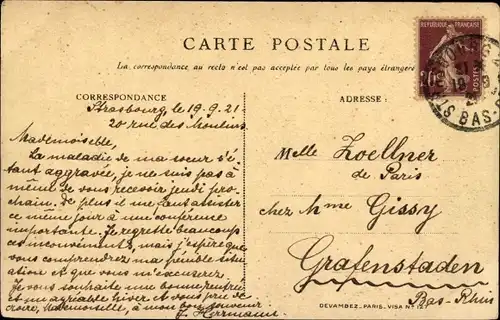 CARTE POSTALE
La correspondance au recto n'est pas acceptée par tous les pays étrangers
RÉPUBLIQUE FRANÇAISE
20
BAS-
CORRESPONDANCE
ADRESSE:
Strasbourg, le 19.9.21
20 rue des Moulins
Mademoiselle,
La maladie de ma soeur s'é-
tant aggravée, je ne suis pas à
même de vous recevoir jeudi pro-
chain. De plus il me faut assister
ce même jour à une conférence
importante. Je regrette beaucoup
ces inconvénients, mais j'espère que
vous comprendrez ma pénible situ-
ation et que vous m'excuserez.
Je vous souhaite une bonne
et un agréable hiver et vous prie de
croire, Mademoiselle, à mon bon souvenir
J. Hermann
Melle Zoellner
de Paris
chez Mme Gissy
Grafenstaden
Bas-Rhin
DEVAMBEZ. PARIS. VISA N° 127